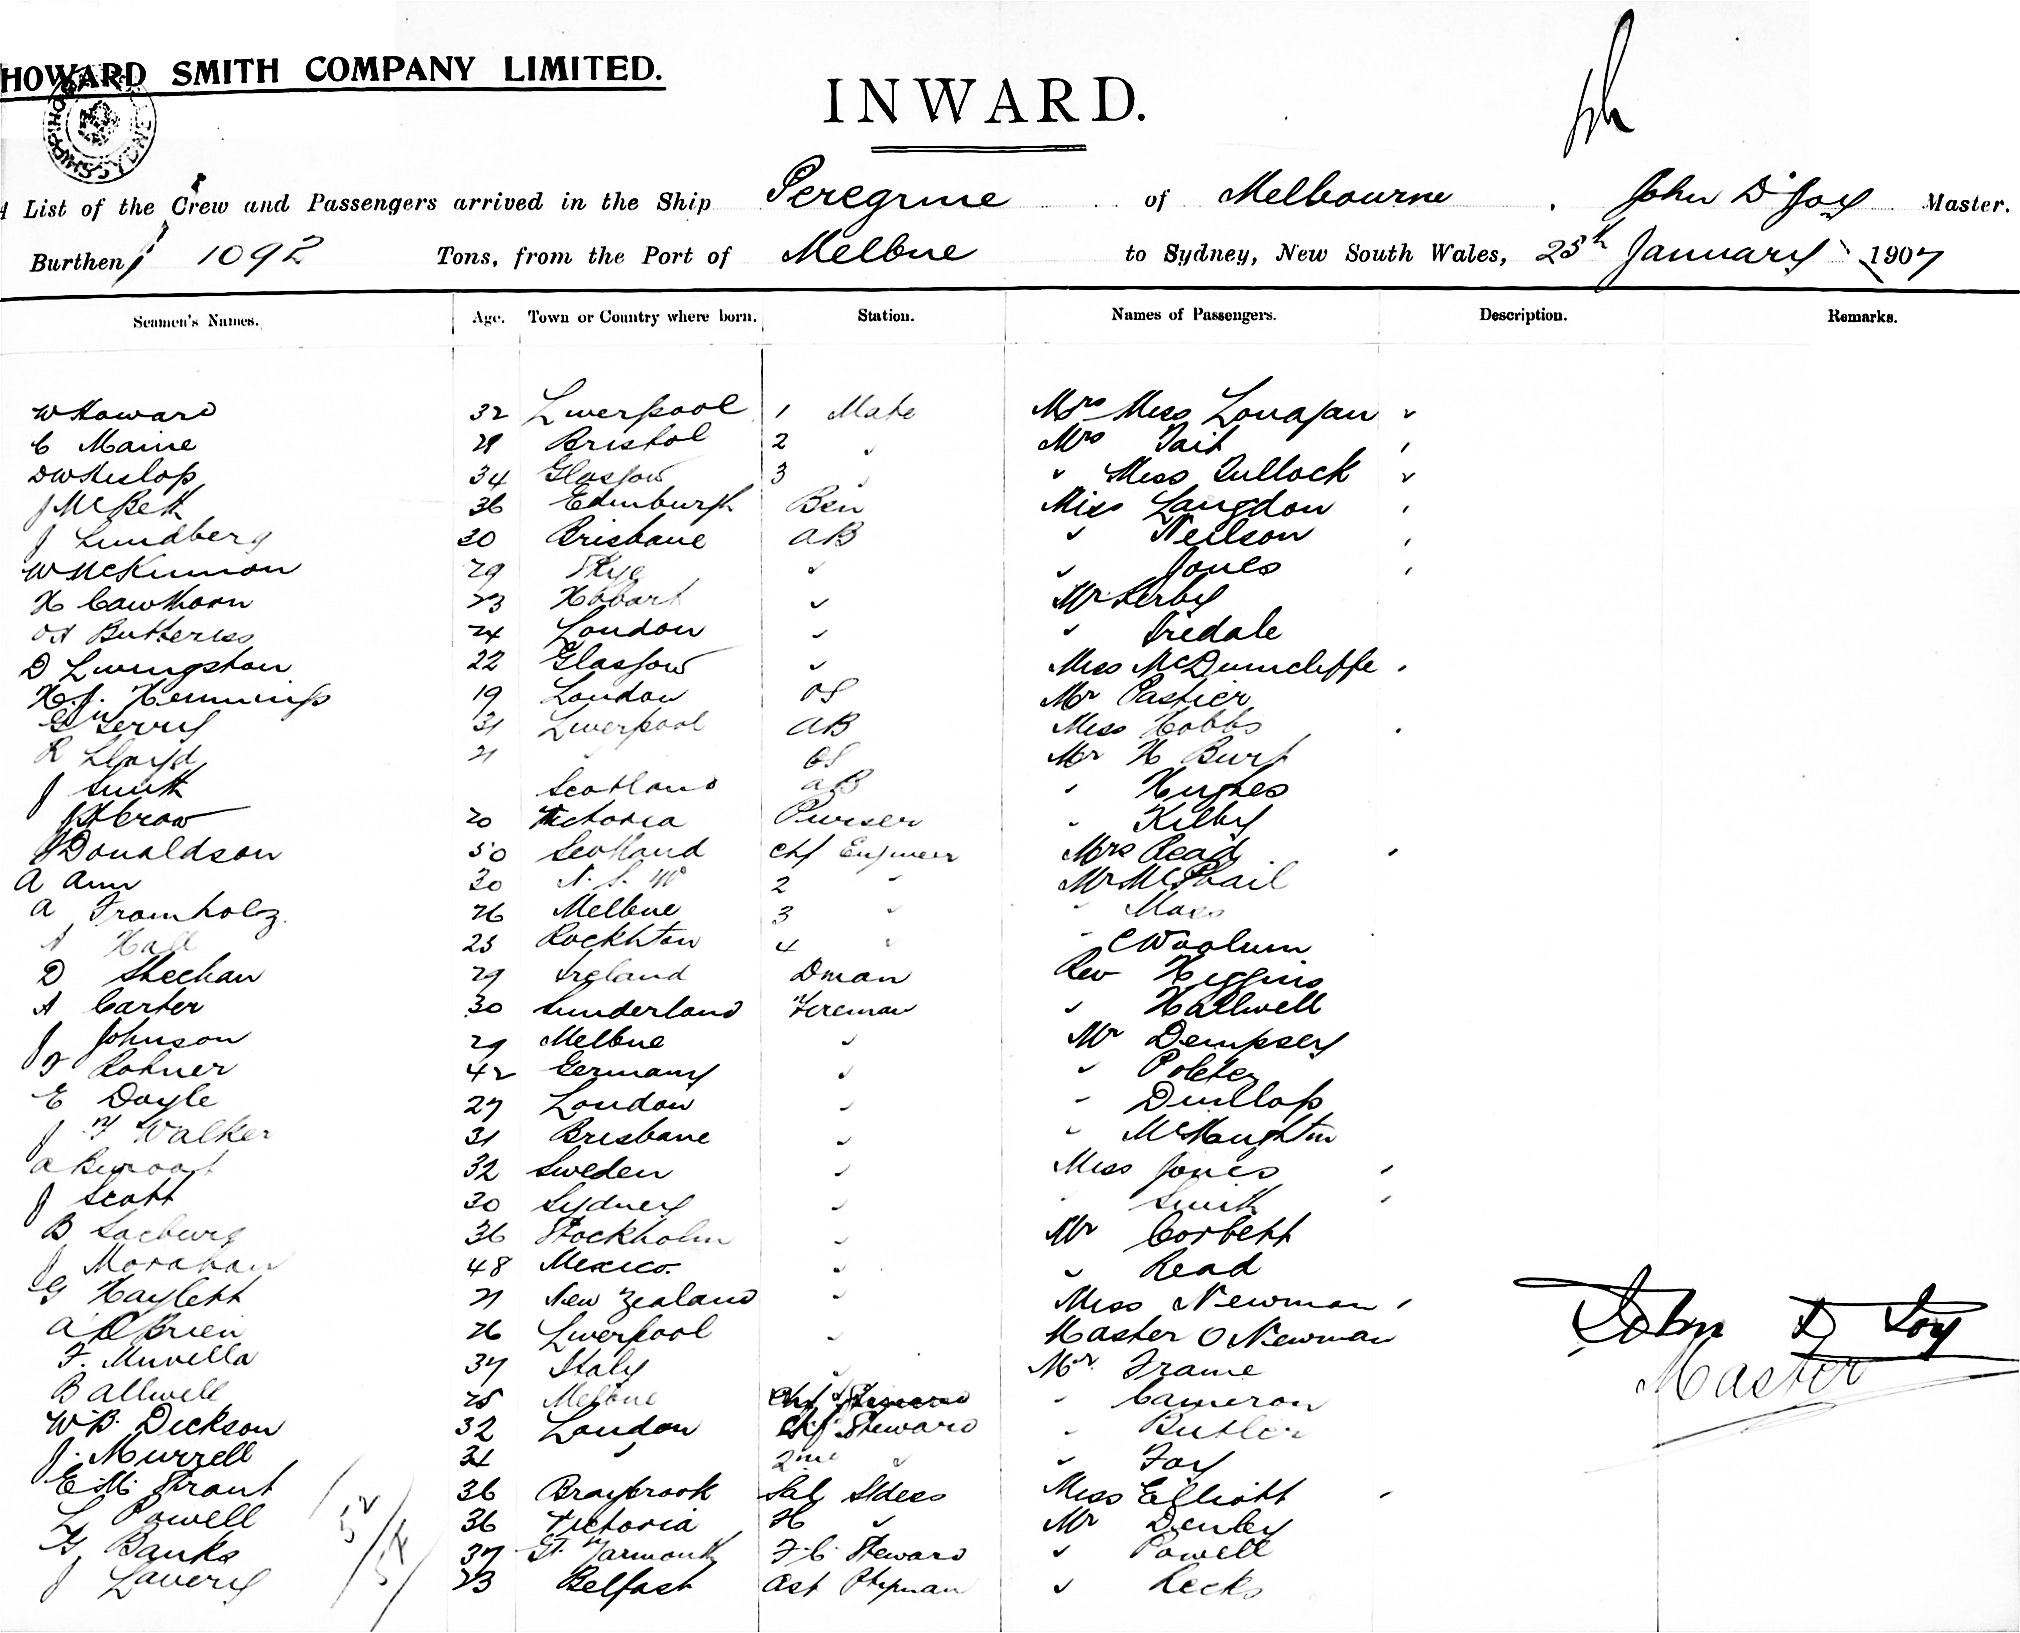 HOWARD SMITH COMPANY LIMITED.
INWARD.
A List of the Crew and Passengers arrived in the Ship Peregrine of Melbourne, John D Joy Master.
Burthen 1092 Tons, from the Port of Melbne to Sydney, New South Wales, 25th January 1907
Seamen's Names. Age. Town or Country where born. Station. Names of Passengers. Description. Remarks.
W Howard 32 Liverpool 1 Mate Mrs Miss Lonagan
C Maine Bristol 2 " Mrs Tait
D W Heslop 34 Glasgow 3 " " Miss Tullock
J McBeth 36 Edinburgh Bsn Miss Langdon
J Lundberg 30 Brisbane AB " Neilson
W McKinnon 29 Skye " " Jones
H Cawthorn 23 Hobart " Mr Kerby
Butteriss 24 London " " Iredale
D Livingston 22 Glasgow " Miss McDunncliffe
H.J. Hemmings 19 London OS Mr Pastier
G Gerry 31 Liverpool AB Miss Hobbs
R Lloyd 21 OS Mr H Burt
J Smith Scotland AB " Hughes
J H Crow 20 Victoria Purser " Kilby
J Donaldson 50 Scotland Chf Engineer Mrs Read
A Ann 30 N.S.W 2 " Mr McPhail
A Fromholz. 26 Melbne 3 " " Moss
A Hall 25 Rockhton 4 " " C Woolum
D Sheehan 29 Ireland Dman Rev Higgins
A Carter 30 Sunderland Fireman " Hallwell
J Johnson 29 Melbne " Mr Dempsey
F Rohner 42 Germany " "
E Doyle 27 London " " Dunlop
J F Walker 31 Brisbane " " McNaughton
A 32 Sweden " Miss Jones
J Scott 30 Sydney " " Smith
B Saeburg 36 Stockholm " Mr Corbett
J Morahan 48 Mexico. " " Read
G Haylett 21 New Zealand " Miss Newman
A O'Brien 26 Liverpool " Master O Newman
F. Muvella 37 Italy " Mr. Frame
B Allwell 25 Melbne " Cameron
W.B. Dickson 32 London Chf Steward " Butler
J. Murrell 31 " 2nd " " Foy
E.M. Strant 36 Braybrook Sal Stdess Miss Elliott
L Powell 36 Victoria " Mr Denley
G Banks 37 Gt. Yarmouth F.C. Steward " Powell
J Lavery 23 Belfast Ast Ptryman " Leeks
52/54
John D Joy
Master